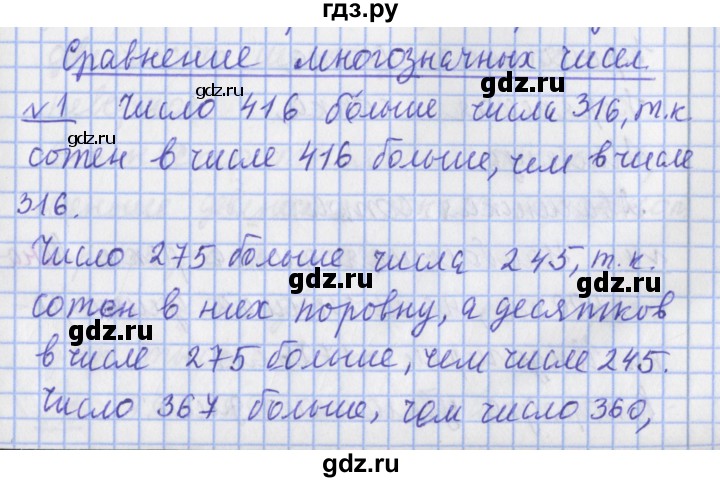 гдз.ру
Сравнение многозначных чисел
№1 Число 416 больше числа 316, т.к.
сотен в числе 416 больше, чем в числе
316.
gdz.ru
gdz.ru
Число 275 больше числа 245, т.к.
gdz.ru
gdz.ru
сотен в них поровну, а десятков
gdz.ru
gdz.ru
в числе 275 больше, чем числе 245.
Число 367 больше, чем число 360,
gdz.ru
gdz.ru
gdz.ru